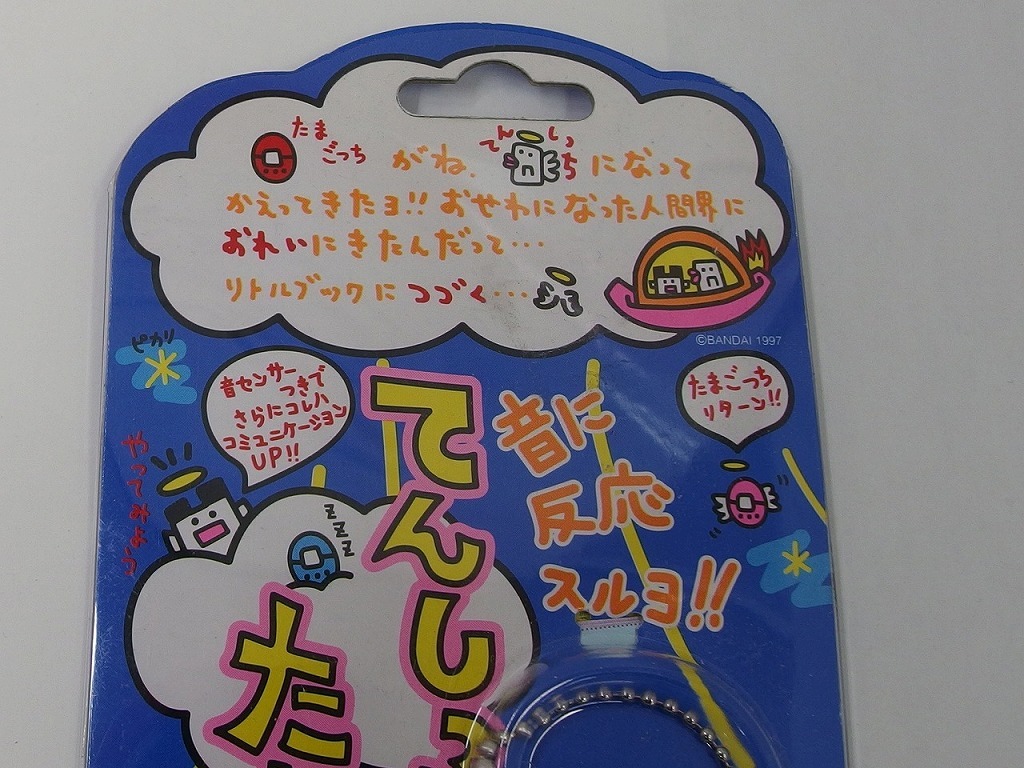 たまごっちがね、てんしっちになって
かえってきたヨ!! おせわになった人間界に
おれいにきたんだって…
リトルブックにつづく…
©BANDAI 1997
ピカリ
音センサー
つきで
さらにコレハ
コミュニケーション
UP!!
たまごっち
リターン!!
音に
反応
スルヨ!!
てんし
た
zzz